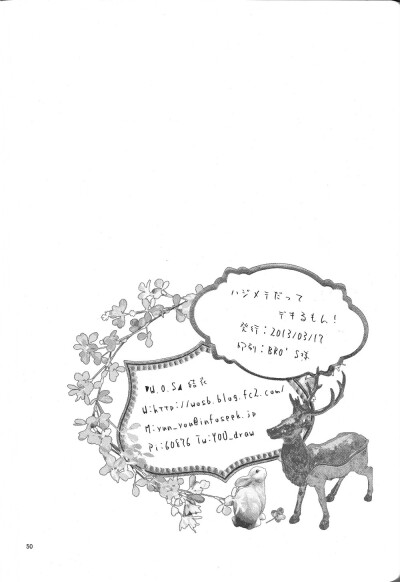 ハジメテだって
デキるもん!
発行:2013/03/17
印刷:BRO'S様
U:http://wosb.blog.fc2.com/
M:yun_you@infoseek.jp
Pi:60876 Tw:YOU_draw
50